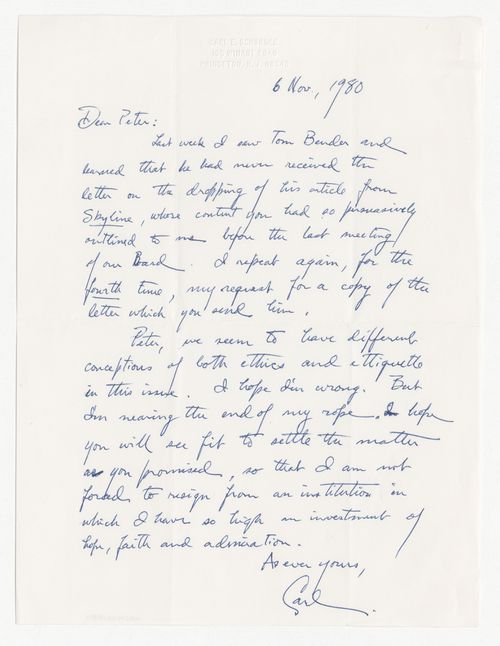 CARL E. SCHORSKE
106 WINANT ROAD
PRINCETON, N.J. 08540
6 Nov, 1980
Dear Peter:
Last week I saw Tom Bender and
learned that he had never received the
letter on the dropping of his article from
Skyline, whose content you had so persuasively
outlined to me before the last meeting
of our Board. I repeat again, for the
fourth time, my request for a copy of the
letter which you send him.
Peter, we seem to have different
conceptions of both ethics and ettiquette
in this issue. I hope I'm wrong. But
I'm nearing the end of my rope. I hope
you will see fit to settle the matter
as you promised, so that I am not
forced to resign from an institution in
which I have so high an investment of
hope, faith and admiration.
As ever yours,
Carl